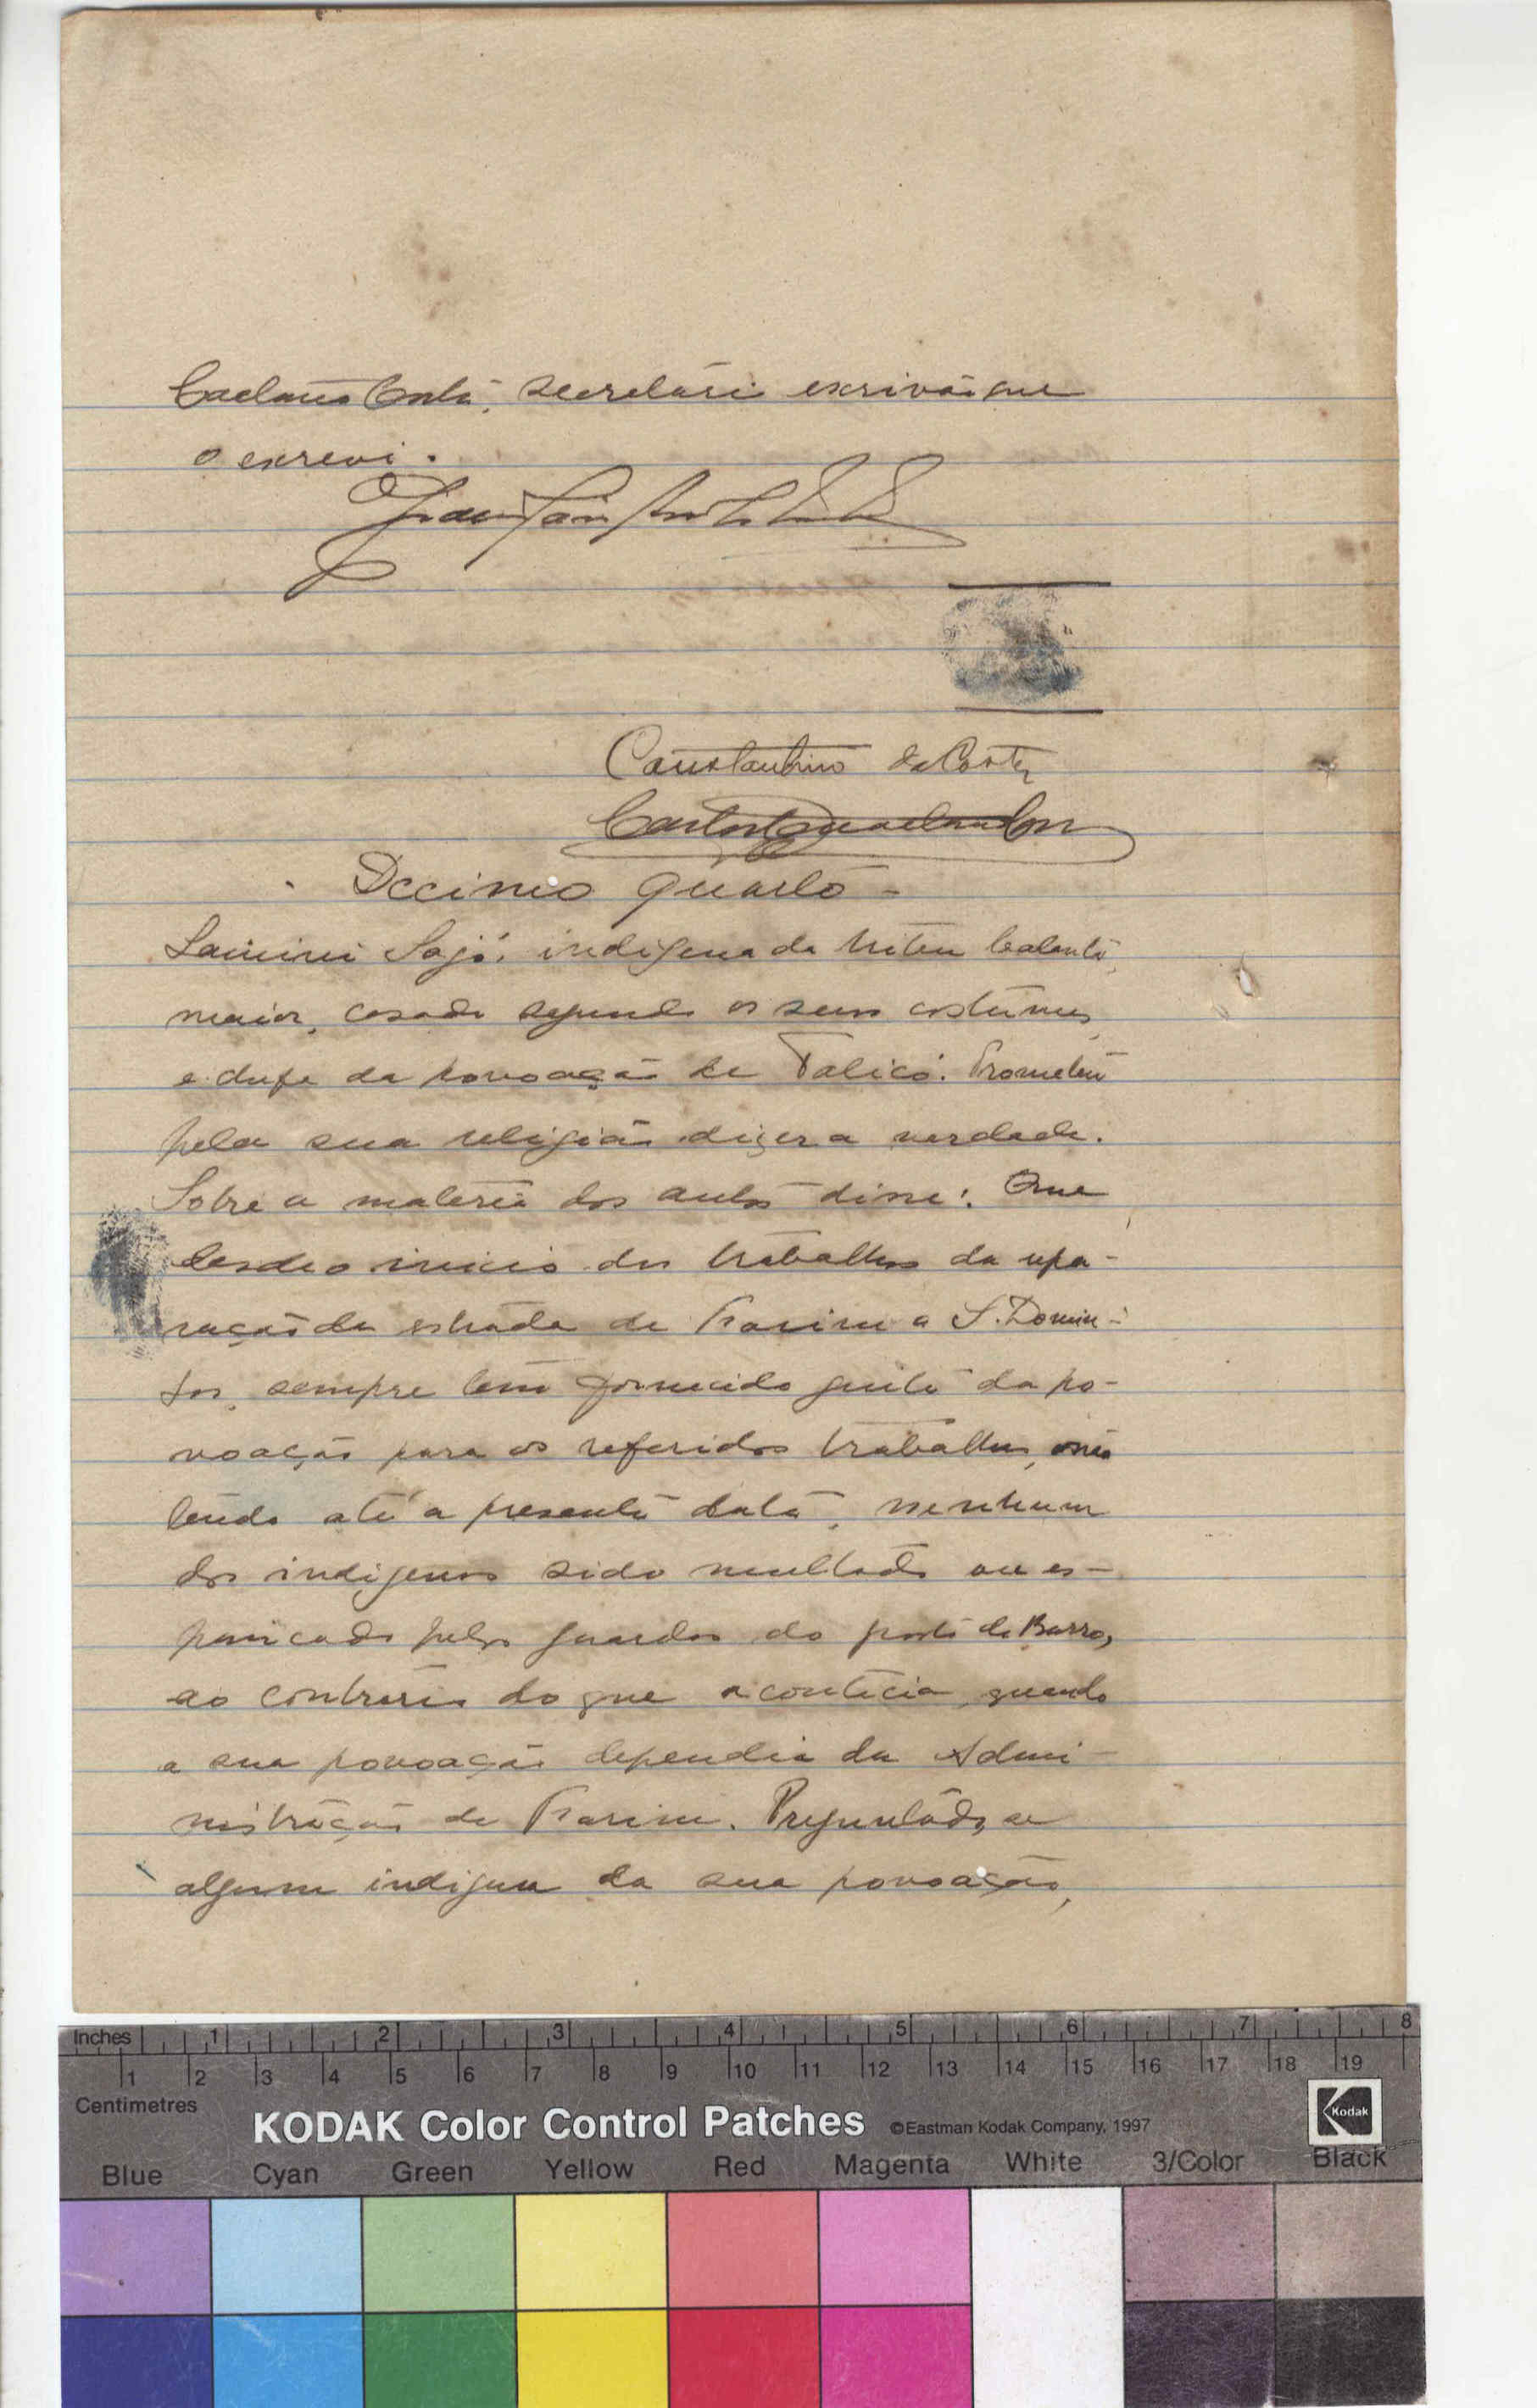 secretário escrivão que
o escrevi.
Constantino da Costa
Decimo quarto -
Lamini Sajó, indigena da tribu balanta,
maior, casado segundo os seus costumes,
e chefe da povoação de Talicó. Prometeu
pela sua religião dizer a verdade.
Sobre a materia dos autos disse: Que
desde o inicio dos trabalhos da repa-
ração da estrada de Farim a S. Domin-
gos, sempre tem fornecido gente da po-
voação para os referidos trabalhos, não
tendo até a presente data, nenhum
dos indigenas sido multado ou es-
pancado pelos guardas do posto de Barro,
ao contrario do que acontecia, quando
a sua povoação dependia da Admi-
nistração de Farim. Preguntado, se
algum indigena da sua povoação,
Inches 1 2 3 4 5 6 7 8
1 2 3 4 5 6 7 8 9 10 11 12 13 14 15 16 17 18 19
Centimetres
KODAK Color Control Patches ©Eastman Kodak Company, 1997 Kodak
Blue Cyan Green Yellow Red Magenta White 3/Color Black